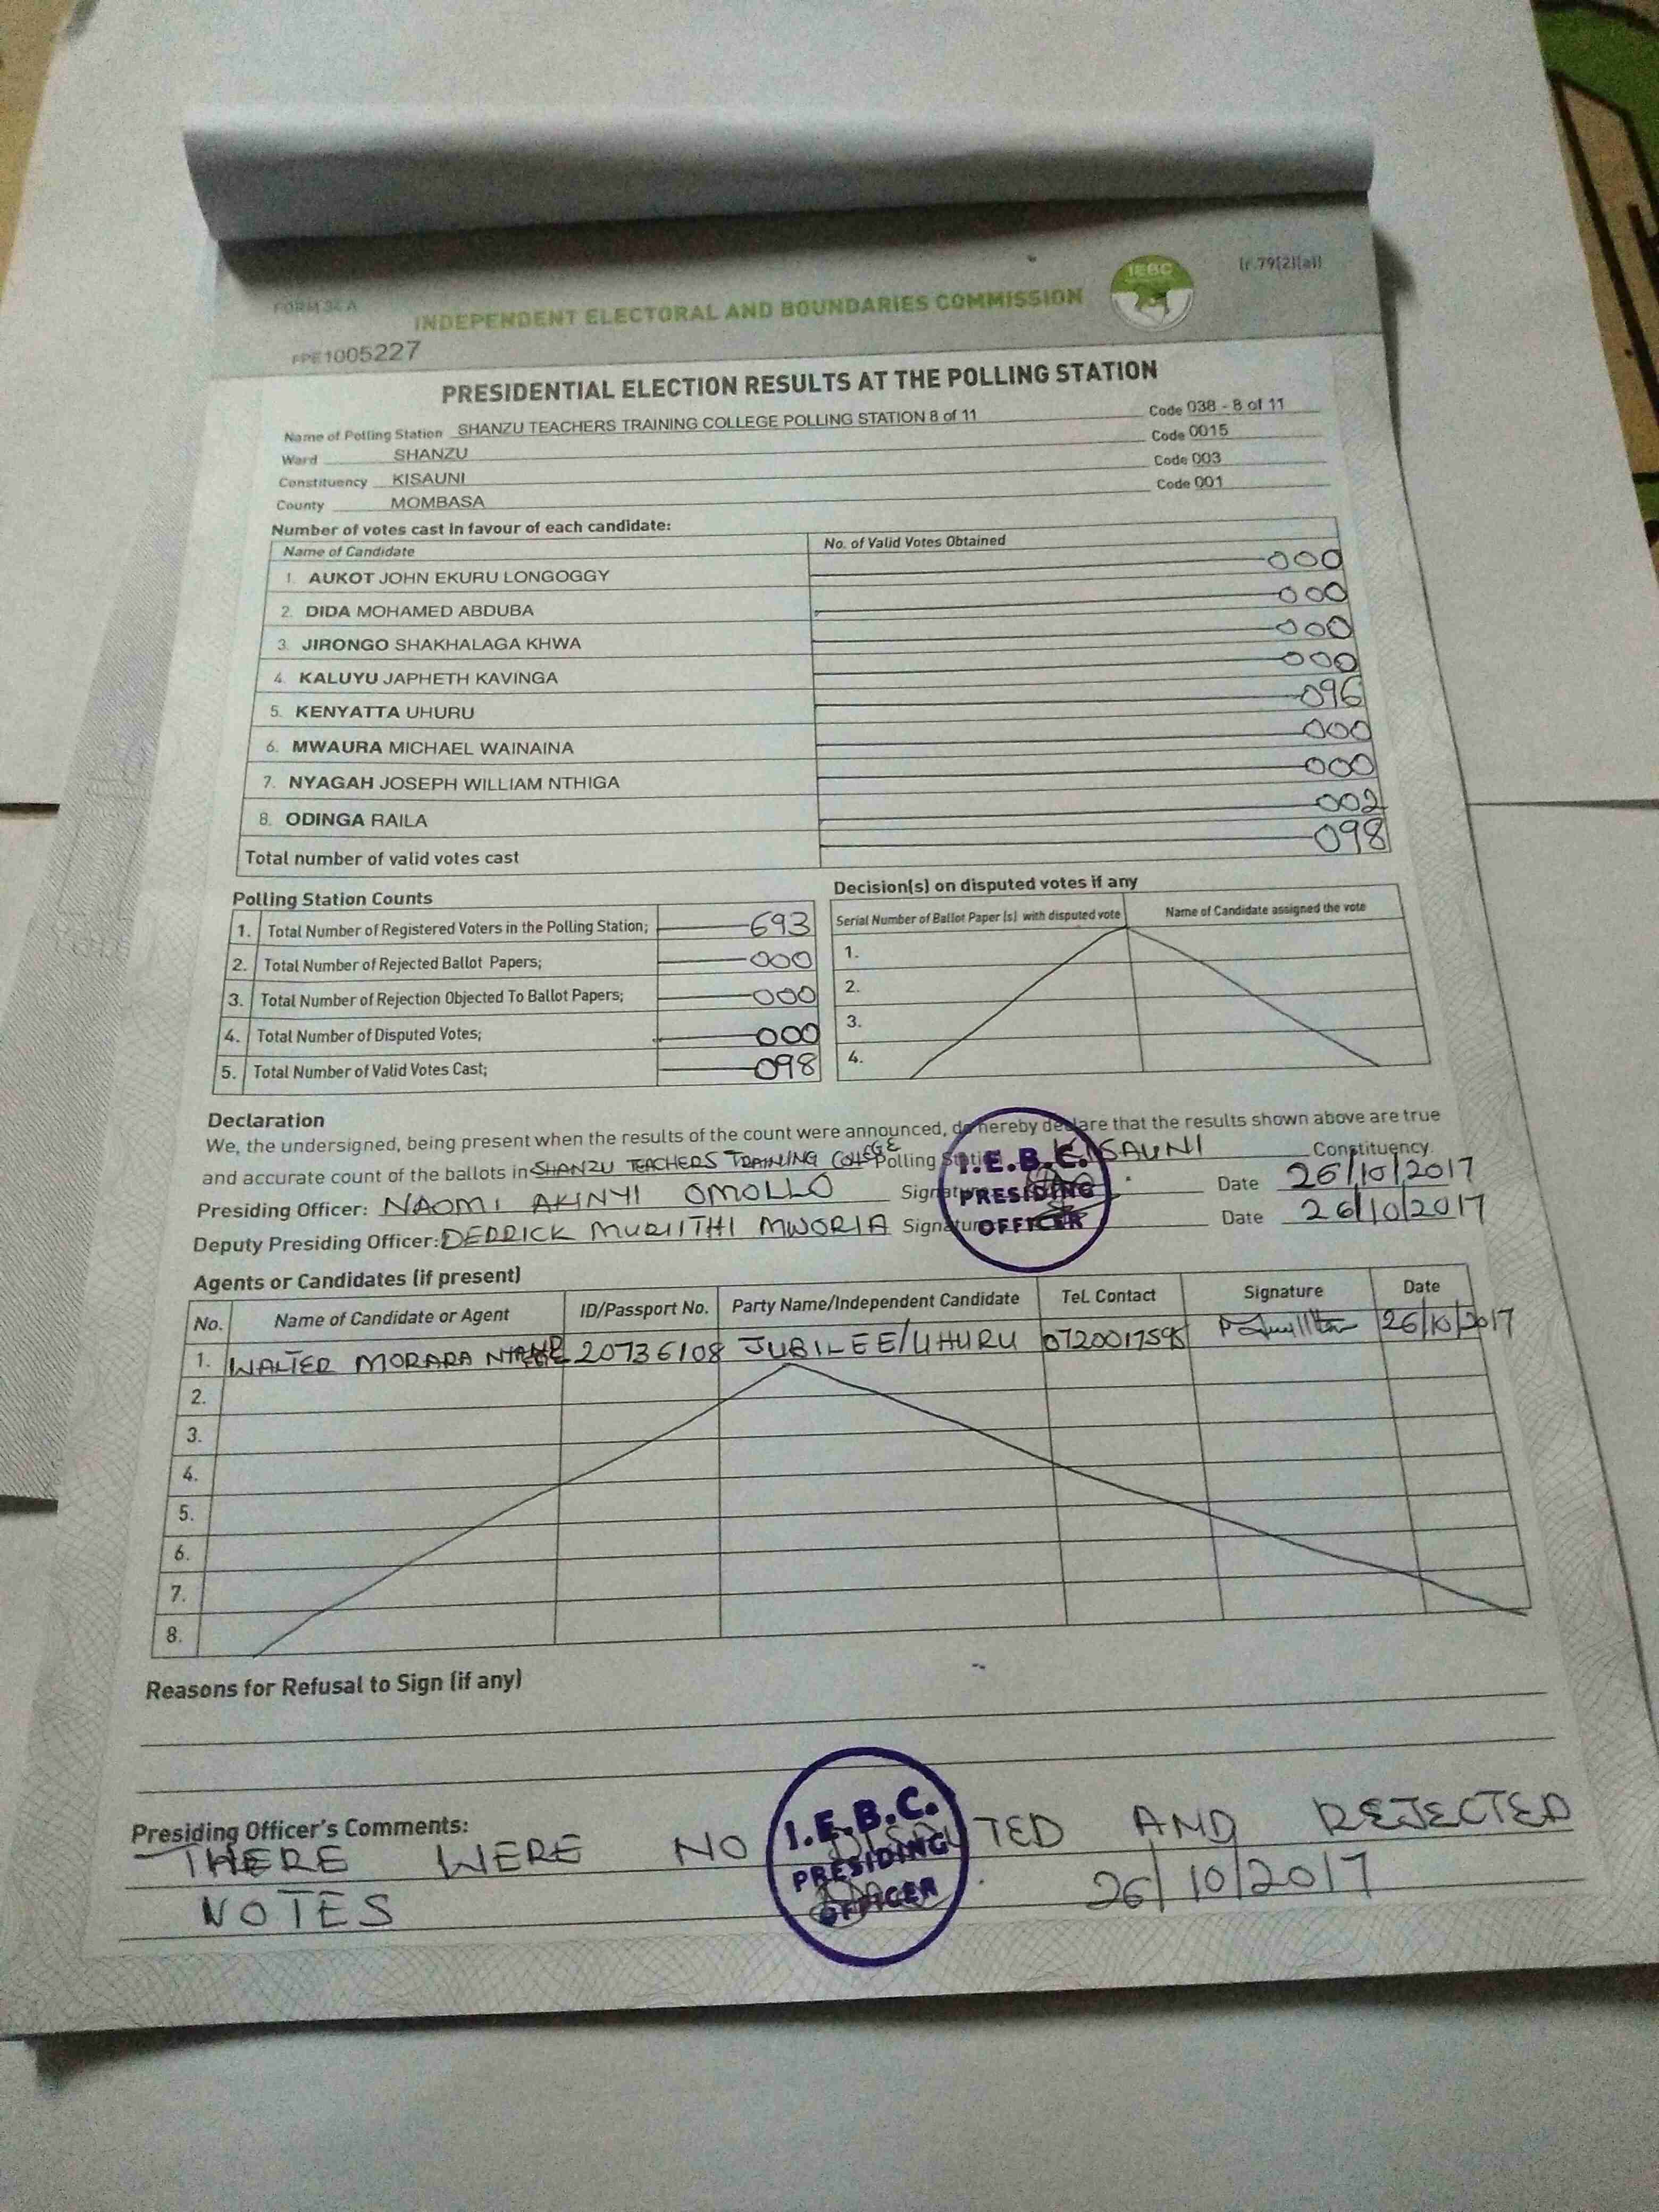 FORM 34 A
INDEPENDENT ELECTORAL AND BOUNDARIES COMMISSION
IEBC
(r.79(2)(a))
FPE1005227
PRESIDENTIAL ELECTION RESULTS AT THE POLLING STATION
Name of Polling Station SHANZU TEACHERS TRAINING COLLEGE POLLING STATION 8 of 11 Code 038 - 8 of 11
Ward SHANZU Code 0015
Constituency KISAUNI Code 003
County MOMBASA Code 001
Number of votes cast in favour of each candidate:
Name of Candidate No. of Valid Votes Obtained
1. AUKOT JOHN EKURU LONGOGGY 000
2. DIDA MOHAMED ABDUBA 000
3. JIRONGO SHAKHALAGA KHWA 000
4. KALUYU JAPHETH KAVINGA 000
5. KENYATTA UHURU 096
6. MWAURA MICHAEL WAINAINA 000
7. NYAGAH JOSEPH WILLIAM NTHIGA 000
8. ODINGA RAILA 002
Total number of valid votes cast 098
Polling Station Counts
1. Total Number of Registered Voters in the Polling Station; 693
2. Total Number of Rejected Ballot Papers; 000
3. Total Number of Rejection Objected To Ballot Papers; 000
4. Total Number of Disputed Votes; 000
5. Total Number of Valid Votes Cast; 098
Decision(s) on disputed votes if any
Serial Number of Ballot Paper (s) with disputed vote Name of Candidate assigned the vote
1.
2.
3.
4.
Declaration
We, the undersigned, being present when the results of the count were announced, do hereby declare that the results shown above are true
and accurate count of the ballots in SHANZU TEACHERS TRAINING COLLEGE Polling Station KISAUNI Constituency
Presiding Officer: NAOMI AKINYI OMOLLO Signature Date 26/10/2017
Deputy Presiding Officer: DERRICK MURIITHI MWORIA Signature Date 26/10/2017
I.E.B.C.
PRESIDING
OFFICER
Agents or Candidates (if present)
No. Name of Candidate or Agent ID/Passport No. Party Name/Independent Candidate Tel. Contact Signature Date
1. WALTER MORARA 20736108 JUBILEE/UHURU 0720017595 26/10/2017
2.
3.
4.
5.
6.
7.
8.
Reasons for Refusal to Sign (if any)
Presiding Officer's Comments:
THERE WERE NO DISPUTED AND REJECTED
NOTES 26/10/2017
I.E.B.C.
PRESIDING
OFFICER